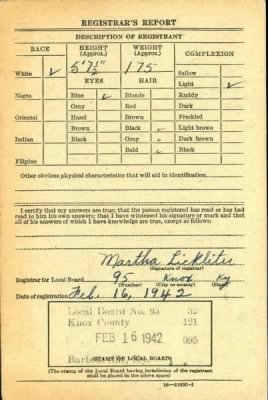 REGISTRAR'S REPORT
DESCRIPTION OF REGISTRANT
RACE HEIGHT (Approx.) WEIGHT (Approx.) COMPLEXION
White ✓ 5'7½" 175 Sallow
EYES HAIR Light ✓
Negro Blue ✓ Blonde Ruddy
Gray Red Dark
Oriental Hazel Brown Freckled
Brown Black ✓ Light brown
Indian Black Gray ✓ Dark brown
Bald ✓ Black
Filipino
Other obvious physical characteristics that will aid in identification.
I certify that my answers are true; that the person registered has read or has had
read to him his own answers; that I have witnessed his signature or mark and that
all of his answers of which I have knowledge are true, except as follows:
Martha Lickliter
(Signature of registrar)
Registrar for Local Board 95 Knox Ky
(Number) (City or county) (State)
Date of registration Feb. 16, 1942
Local Board No. 95 32
Knox County 121
FEB 16 1942 095
(STAMP OF LOCAL BOARD)
(The stamp of the Local Board having jurisdiction of the registrant
shall be placed in the above space)